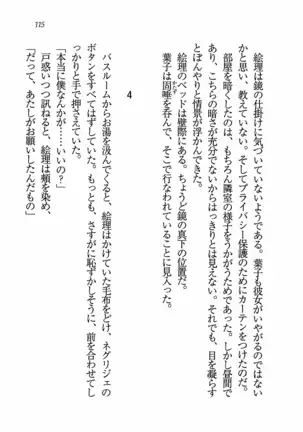 115
絵理は鏡の仕掛けに気づいていないようである。葉子も彼女がいやがるのでは
かと思い、教えていない。そしてプライバシー保護のためにカーテンをつけたのだ。
部屋を暗くしたのは、もちろん隣室の様子をうかがうためであった。しかし昼間で
あり、こちらの暗さが充分でないからはっきりとは見えない。それでも、目を凝らす
とぼんやりと情景が浮かんできた。
絵理のベッドは壁際にある。ちょうど鏡の真下の位置だ。
葉子は固唾を呑んで、そこで行なわれていることに見入った。
4
バスルームからお湯を汲んでくると、絵理はかけていた毛布をどけ、ネグリジェの
ボタンをすべてはずしていた。もっとも、さすがに恥ずかしそうに、前を合わせてし
っかりと手で押さえていた。
「本当に僕なんかが……いいの？」
戸惑いつつ訊ねると、絵理は頬を染め、
「だって、あたしがお願いしたんだもの」